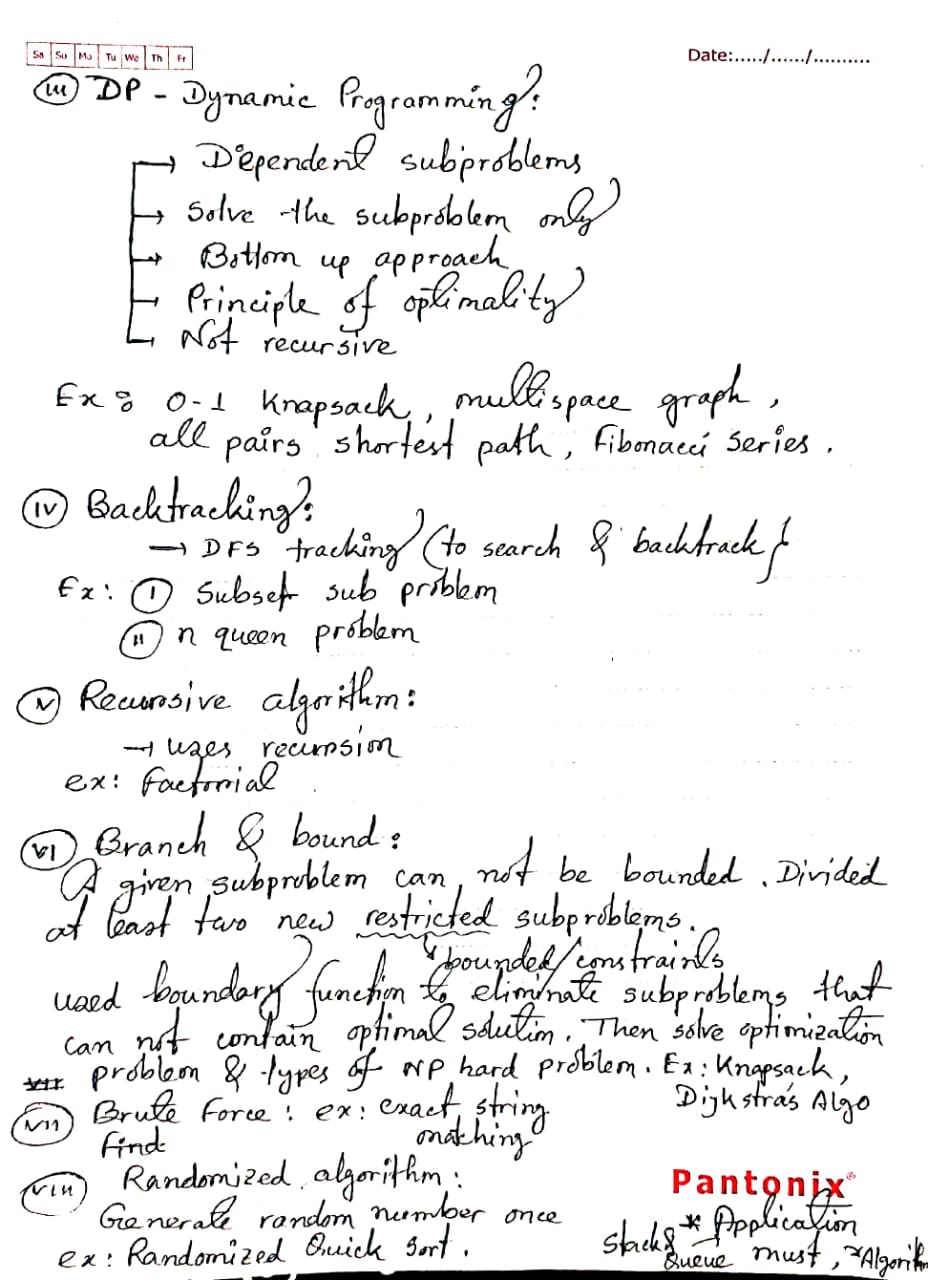 Sa Su Mo Tu We Th Fr
Date:...../....../..........
(iii) DP - Dynamic Programming:
→ Dependent subproblems
→ Solve the subproblem only
→ Bottom up approach
→ Principle of optimality
→ Not recursive
Ex: 0-1 Knapsack, multispace graph,
all pairs shortest path, Fibonacci Series.
(iv) Backtracking:
→ DFS tracking (to search & backtrack)
Ex: (i) Subset sub problem
(ii) n queen problem
(v) Recursive algorithm:
→ uses recursion
ex: factorial
(vi) Branch & bound:
A given subproblem can not be bounded. Divided
at least two new restricted subproblems.
bounded/constraints
used boundary function to eliminate subproblems that
can not contain optimal solution. Then solve optimization
problem & types of NP hard problem. Ex: Knapsack,
Dijkstra's Algo
(vii) Brute Force: ex: exact string
find matching
(viii) Randomized algorithm:
Generate random number once
ex: Randomized Quick Sort.
Pantonix®
* Application
Stack & Queue must, *Algorithm